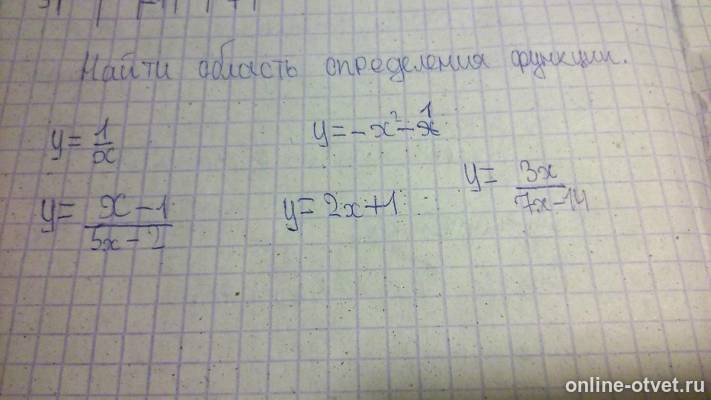 Найти область определения функции.
y = 1/x
y = -x² - 1/x
y = (x-1)/(5x-2)
y = 2x+1
y = 3x/(7x-14)
online-otvet.ru